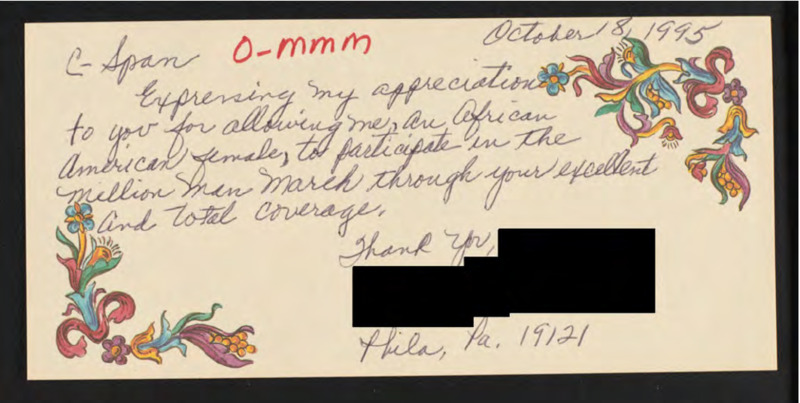 October 18, 1995
C-Span O-mmm
Expressing my appreciation
to you for allowing me, an African
American female, to participate in the
Million Man March through your excellent
and total coverage.
Thank You,
Phila, Pa. 19121